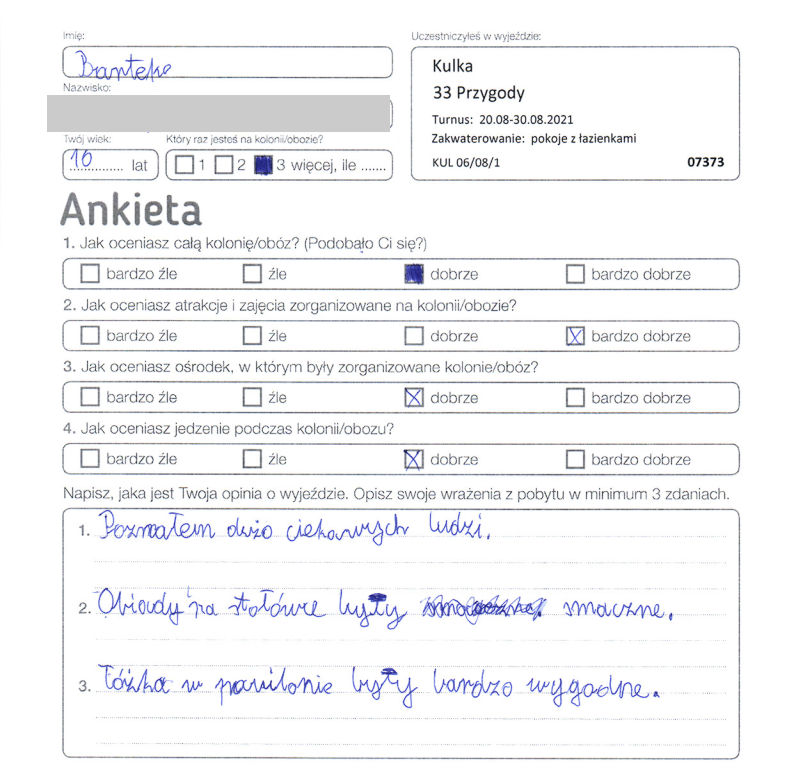 Imię:
Bartek
Nazwisko:
Twój wiek:
10 lat
Który raz jesteś na kolonii/obozie?
1 2 3 więcej, ile .......
Uczestniczyłeś w wyjeździe:
Kulka
33 Przygody
Turnus: 20.08-30.08.2021
Zakwaterowanie: pokoje z łazienkami
KUL 06/08/1 07373
Ankieta
1. Jak oceniasz całą kolonię/obóz? (Podobało Ci się?)
bardzo źle źle dobrze bardzo dobrze
2. Jak oceniasz atrakcje i zajęcia zorganizowane na kolonii/obozie?
bardzo źle źle dobrze bardzo dobrze
3. Jak oceniasz ośrodek, w którym były zorganizowane kolonie/obóz?
bardzo źle źle dobrze bardzo dobrze
4. Jak oceniasz jedzenie podczas kolonii/obozu?
bardzo źle źle dobrze bardzo dobrze
Napisz, jaka jest Twoja opinia o wyjeździe. Opisz swoje wrażenia z pobytu w minimum 3 zdaniach.
1. Poznałem dużo ciekawych ludzi.
2. Obiady na stołówce były smaczne.
3. Łóżka w pawilonie były bardzo wygodne.